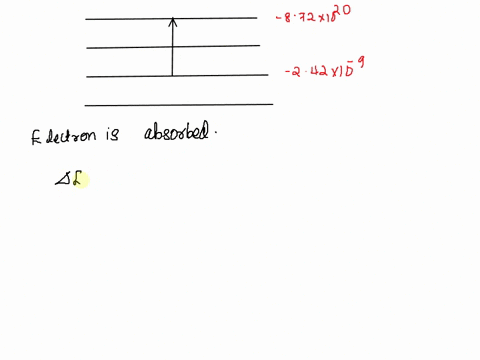 -8.72x10^20
-2.42x10^-9
Electron is absorbed.
ΔE